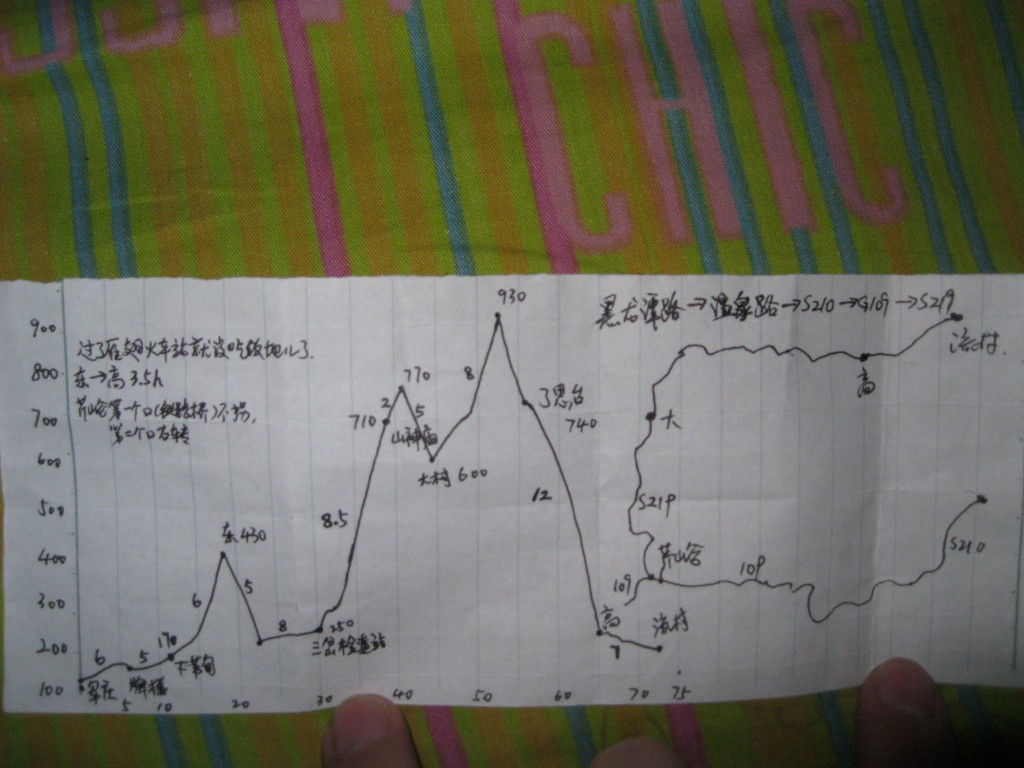 CHIC
黑龙潭路→温泉路→S210→G109→S219
过了雁翅火车站就没吃饭地儿了.
东→高 3.5h
芹峪第一个口(铁路桥)不拐,
第二个口右转
900
800
700
600
500
400
300
200
100
930
770
2
710
5
8
山神庙
了思台
740
大村 600
8.5
12
东 430
6
5
8
250
三岔检查站
170
下苇甸
6
5
军庄
高
流村
7
5
10
20
30
40
50
60
70
75
流村.
高
大
S219
芹峪
109
109
S210